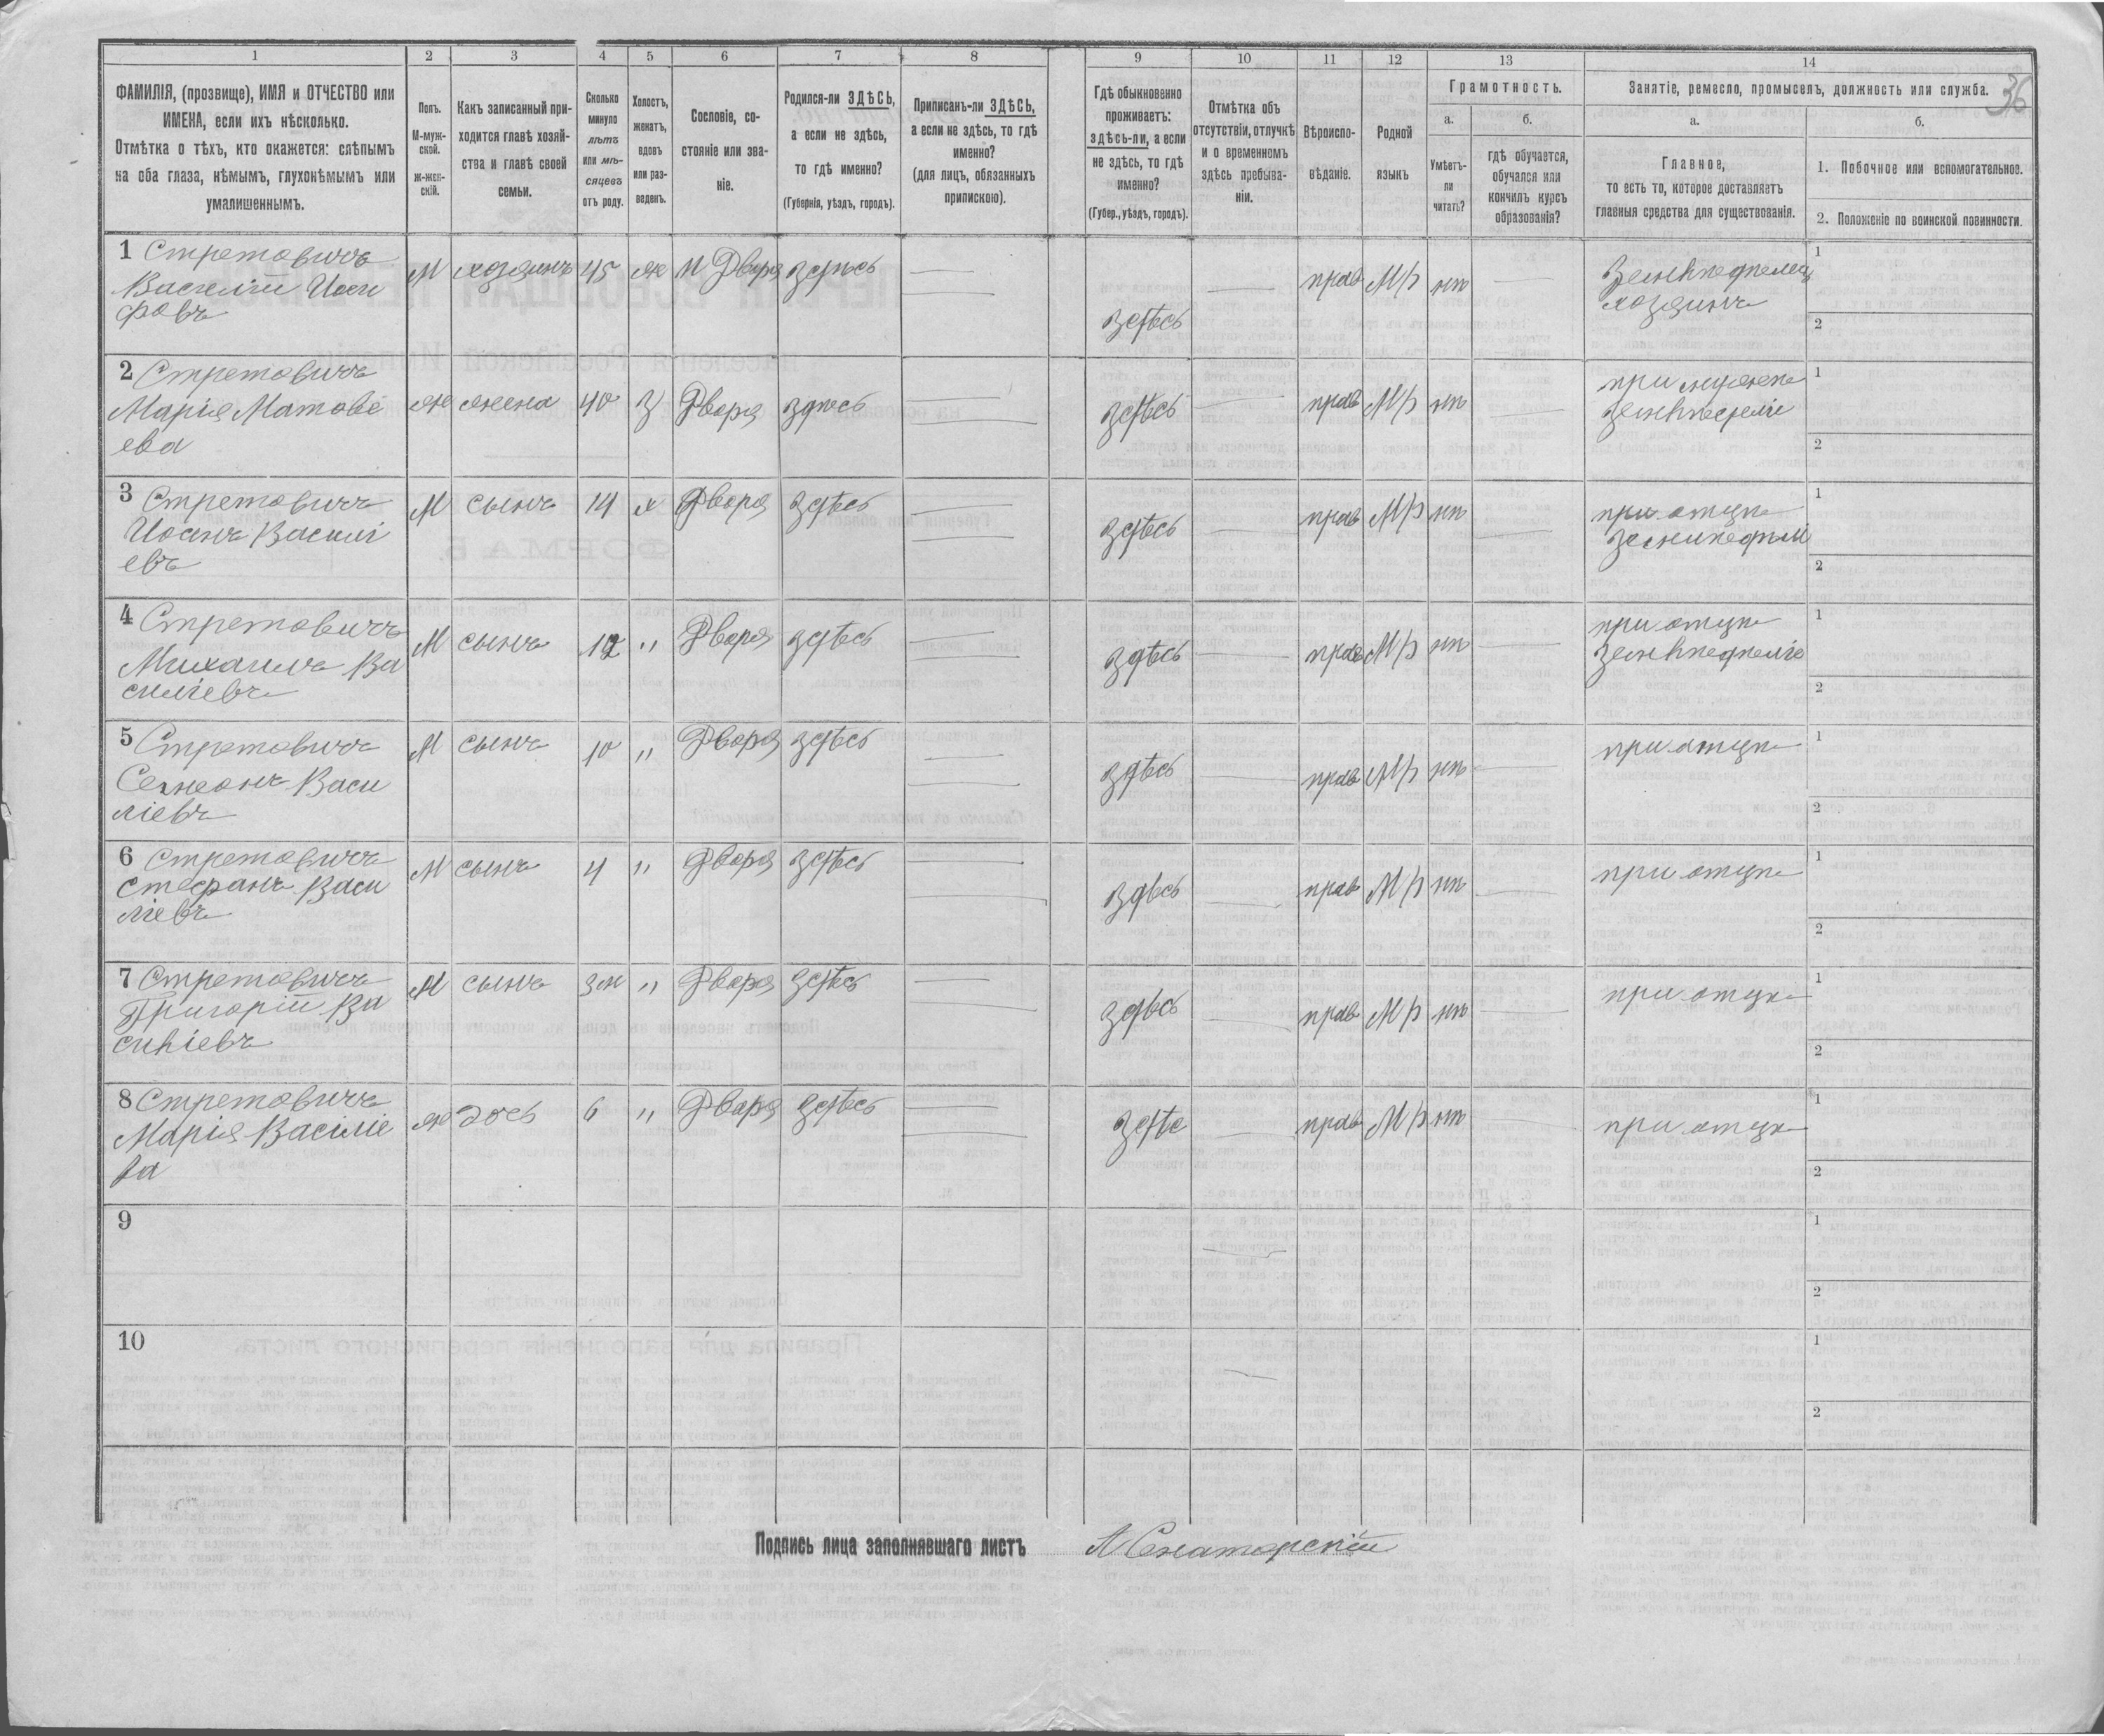 36
1 2 3 4 5 6 7 8 9 10 11 12 13 14
ФАМИЛІЯ, (прозвище), ИМЯ и ОТЧЕСТВО или
ИМЕНА, если ихъ нѣсколько.
Отмѣтка о тѣхъ, кто окажется: слѣпымъ
на оба глаза, нѣмымъ, глухонѣмымъ или
умалишеннымъ.
Полъ.
М-муж-
ской.
Ж-жен-
скій.
Какъ записанный при-
ходится главѣ хозяй-
ства и главѣ своей
семьи.
Сколько
минуло
лѣтъ
или мѣ-
сяцевъ
отъ роду.
Холостъ,
женатъ,
вдовъ
или раз-
веденъ.
Сословіе, со-
стояніе или зва-
ніе.
Родился-ли ЗДѢСЬ,
а если не здѣсь,
то гдѣ именно?
(Губернія, уѣздъ, городъ).
Приписанъ-ли ЗДѢСЬ,
а если не здѣсь, то гдѣ
именно?
(для лицъ, обязанныхъ
припискою).
Гдѣ обыкновенно
проживаетъ:
здѣсь-ли, а если
не здѣсь, то гдѣ
именно?
(Губер., уѣздъ, городъ).
Отмѣтка объ
отсутствіи, отлучкѣ
и о временномъ
здѣсь пребыва-
ніи.
Вѣроиспо-
вѣданіе.
Родной
языкъ
Грамотность.
а.
Умѣетъ-
ли
читать?
б.
гдѣ обучается,
обучался или
кончилъ курсъ
образованія?
Занятіе, ремесло, промыселъ, должность или служба.
а.
Главное,
то есть то, которое доставляетъ
главныя средства для существованія.
б.
1. Побочное или вспомогательное.
2. Положеніе по воинской повинности.
1 Стретовичъ
Василій Иоси
фовъ
М хозяинъ 45 ж П Дворя здѣсь — здѣсь — прав М/р нѣ —
Земледѣлец
хозяинъ
1
2
2 Стретовичъ
Марія Матове
ева
ж жена 40 З Дворя здѣсь — здѣсь — прав М/р нѣ —
при мужѣ
земледеліе
1
2
3 Стретовичъ
Иоанъ Василі
евъ
М сынъ 14 х Дворя здѣсь — здѣсь — прав М/р нѣ —
при отцѣ
1
2
4 Стретовичъ
Михаилъ Ва
силіевъ
М сынъ 12 „ Дворя здѣсь — здѣсь — прав М/р нѣ —
при отцѣ
земледѣліе
1
2
5 Стретовичъ
Семеонъ Васи
ліевъ
М сынъ 10 „ Дворя здѣсь — здѣсь — прав М/р нѣ —
при отцѣ
1
2
6 Стретовичъ
Стефанъ Васи
ліевъ
М сынъ 4 „ Дворя здѣсь — здѣсь — прав М/р нѣ —
при отцѣ
1
2
7 Стретовичъ
Григорій Ва
силіевъ
М сынъ 3м „ Дворя здѣсь — здѣсь — прав М/р нѣ —
при отцѣ
1
2
8 Стретовичъ
Марія Васіліе
ва
ж дочь 6 „ Дворя здѣсь — здѣс — прав М/р нѣ —
при отцѣ
1
2
9
1
2
10
1
2
Подпись лица заполнявшаго листъ